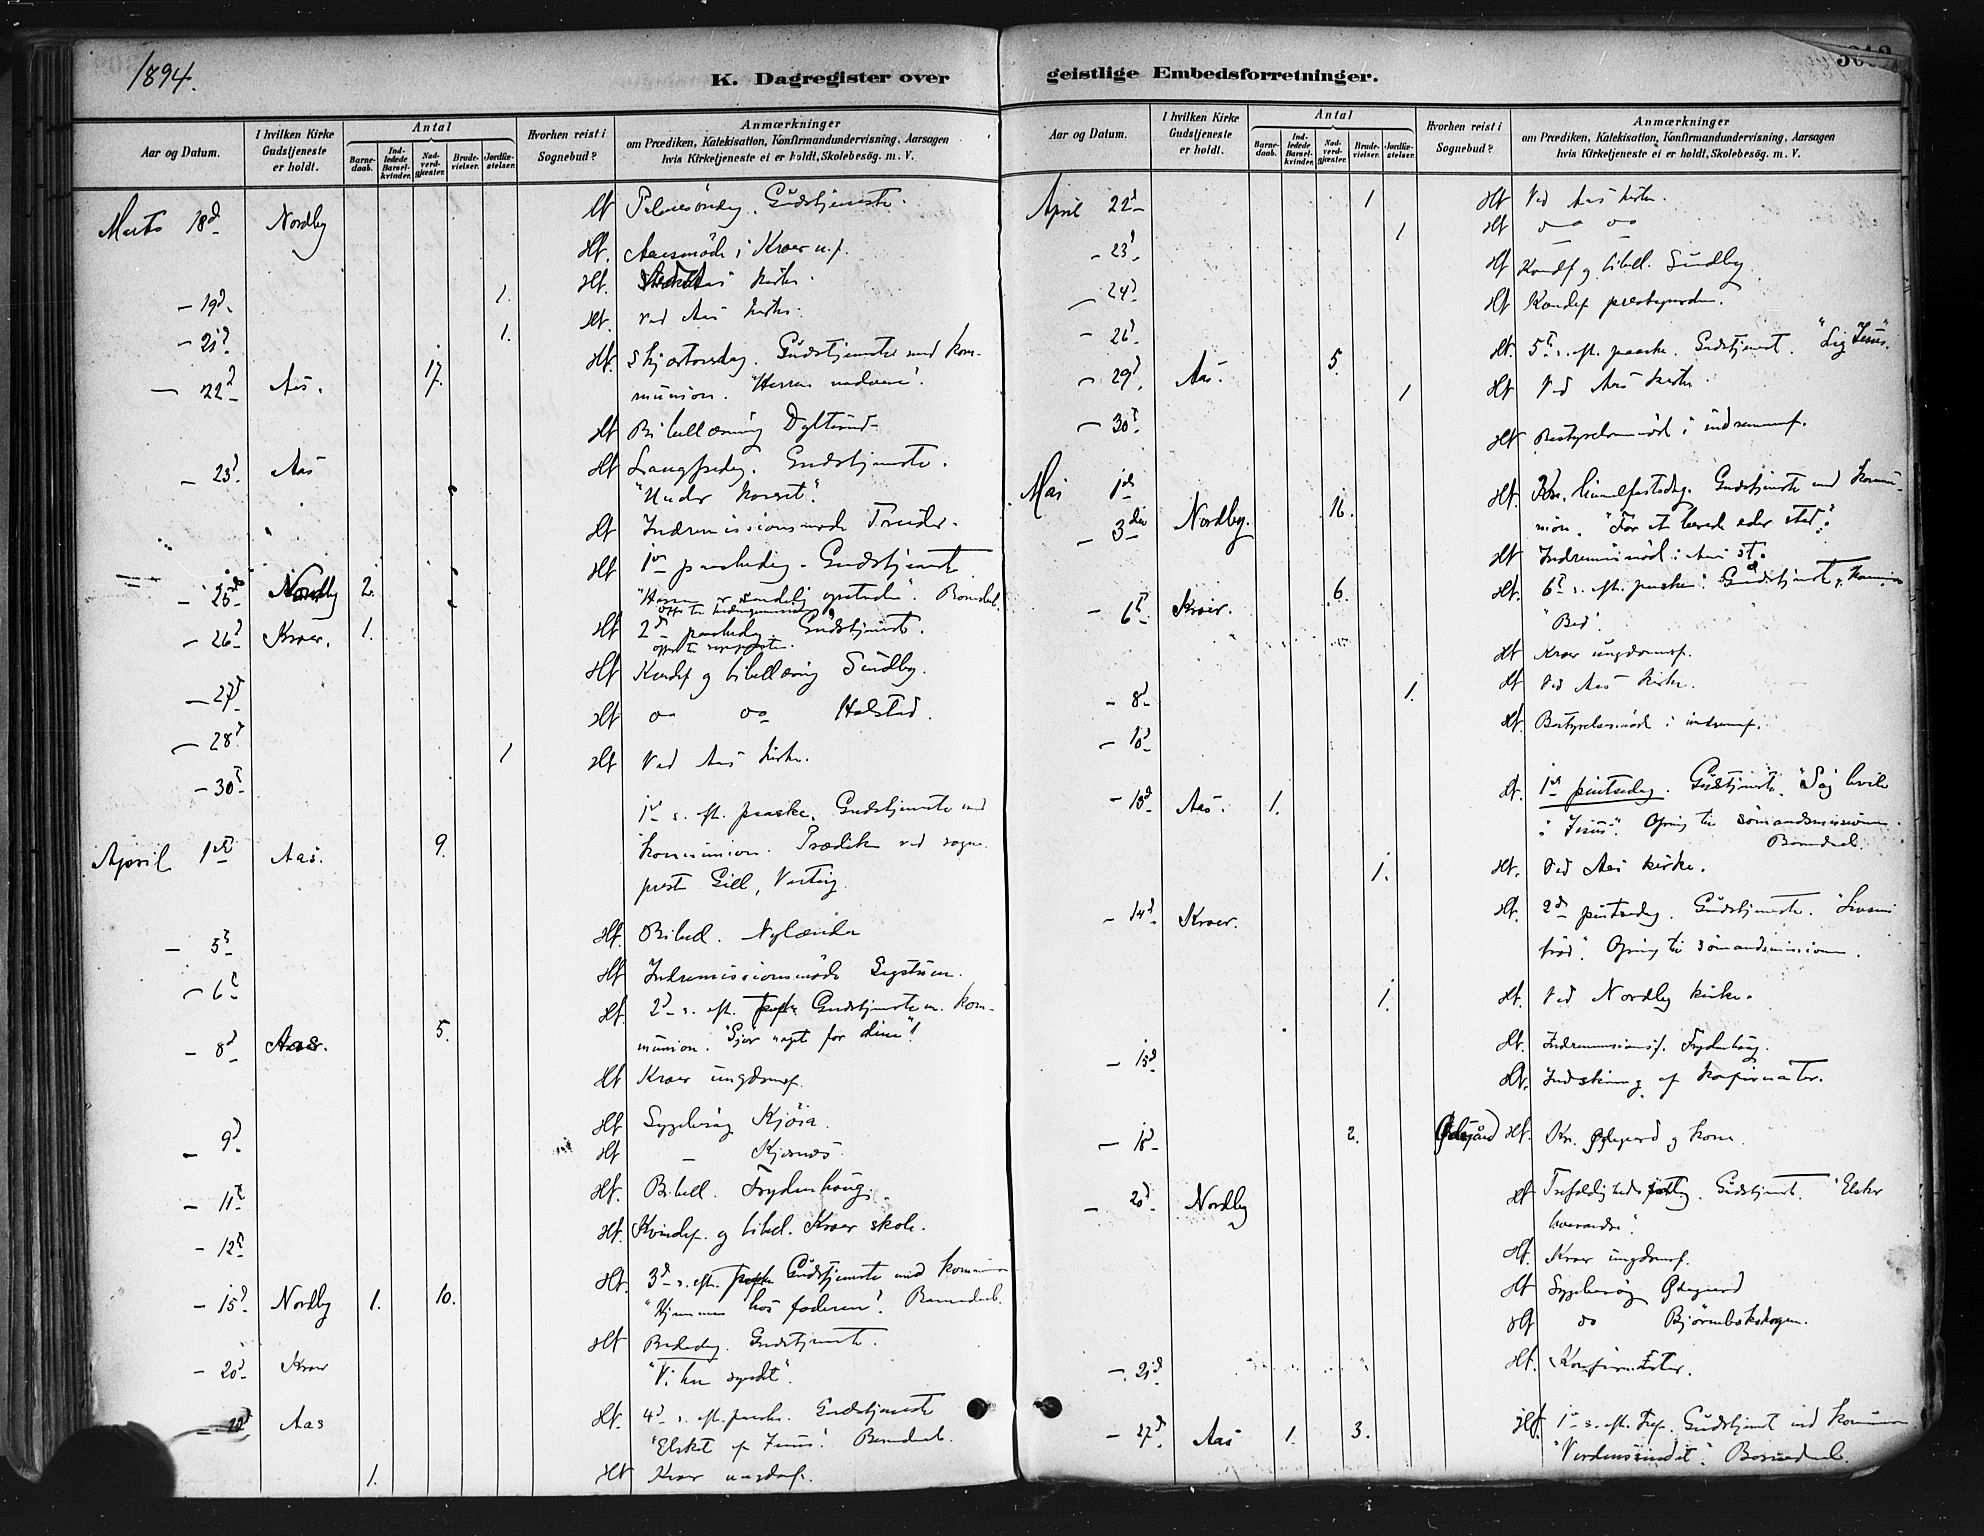 1894.
K. Dagregister over
Aar og Datum.
I hvilken Kirke Gudstjeneste er holdt.
Antal
Barnedaab.
Indledede Barselkvinder.
Nadverdgjæster.
Brudevielser.
Jordfæstelser.
Hvorhen reist i Sognebud?
Anmærkninger
om Prædiken, Katekisation, Konfirmandundervisning, Aarsagen
hvis Kirketjeneste ei er holdt, Skolebesög. m. V.
Marts 18d Nordby Hf Palmesöndag. Gudstjeneste.
Hf. Aarsmöde i Kroer u.f.
- 19d 1. Hf. Aas kirke.
- 21d 1. Hf. Ved Aas kirke.
- 22d Aas. 17. Hf. Skjærtorsdag. Gudstjeneste med kom-
munion. "Herrens nadvere".
Hf Bibellæsning
- 23d Aas Hf Langfredag. Gudstjeneste.
"Under korset".
Hf Indremissionsmöde
- 25de Nordby 2. Hf 1ste paaskedag. Gudstjeneste
"Herren er sandelig opstanden". Barnedaab.
- 26d Kroer. 1. Hf 2d paaskedag. Gudstjeneste.
- 27d Hf Kvindef og bibellæsning Sundby.
- 28d Hf do do Holstad.
- 30te 1 Hf Ved Aas kirke.
April 1ste Aas. 9. 1ste s. eft. paaske. Gudstjeneste med
kommunion. Prædiken ved sogne-
prest Gill, Vestby.
- 5te Hf. Bibell. Nylænde
- 6te Hf Indremissionsmöde
- 8d Aas. 5. Hf. 2d s. eft. paaske Gudstjeneste m. kom-
munion. "Gjør noget for dine"!
Hf Kroer ungdomsf.
- 9d Hf Sygebesög Kjösa.
Hf - Kjærnes.
- 11te Hf. Bibell. Frydenhaug.
- 12te Hf. Kvindef. og bibel. Kroer skole.
- 15d Nordby 1. 10. Hf. 3d s. eft. paaske Gudstjeneste med kommunion
"Hjemme hos faderen". Barnedaab.
- 20d Kroer Hf Bededag. Gudstjeneste.
"Vi har syndet".
- 22d Aas Hf. 4d s. eft. paaske. Gudstjeneste
"Elsket af Jesus". Barnedaab.
1. Hf Kroer ungdomsf.
geistlige Embedsforretninger.
Aar og Datum.
I hvilken Kirke Gudstjeneste er holdt.
Antal
Barnedaab.
Indledede Barselkvinder.
Nadverdgjæster.
Brudevielser.
Jordfæstelser.
Hvorhen reist i Sognebud?
Anmærkninger
om Prædiken, Katekisation, Konfirmandundervisning, Aarsagen
hvis Kirketjeneste ei er holdt, Skolebesög. m. V.
April 22d 1 Hf Ved Aas kirke.
- 23d 1 Hf do do
- 24d Hf Kvindf og bibell. Sundby.
- 26d Hf Kvindef prestegaarden.
- 29d Aas. 5. Hf. 5te s. eft. paaske. Gudstjenest. "Lig Jesus".
- 30te 1 Hf Ved Aas kirke.
Mai 1ste Hf Bestyrelsesmöde i indremf.
- 3die Nordby. 16. Hf. Kr. himmelfartsdag. Gudstjeneste med kommu-
nion. "For at berede eder sted".
Hf Indremismöde i Aas st.
- 6te Kroer. 6. Hf. 6te s. eft. paaske. Gudstjeneste, kommunion
"Bed".
Hf Kroer ungdomsf.
- 8d 1. Hf Ved Aas kirke.
- 10d Hf. Bestyrelsesmöde i indremf.
- 13d Aas. 1. Hf. 1ste pintsedag. Gudstjeneste. "Søg hvile
i Jesus". Ofring til sömandsmissionen.
Barnedaab.
1. Hf. Ved Aas kirke.
- 14d Kroer. Hf. 2den pintsedag. Gudstjeneste. "Livsens
bröd". Ofring til sömandsmissionen.
1. Hf. Ved Nordby kirke.
- 15d Hf. Indremissionsf. Frydenhaug.
Hf. Indskrivning af konfirmanter.
- 18d 2. Ødegård Hf. Kr. Ødegaard og kone.
- 20d Nordby Hf Trefoldighedssöndag. Gudstjenest. "Elsker
hverandre".
Hf. Kroer ungdomsf.
Hf Sygebesög Ødegaard
Hf do Björnebækskogen.
- 21d Hf. Konfirmanter.
- 27d Aas 1. 3. Hf. 1ste s. eft. Tref. Gudstjenest med kommunion
Barnedaab.